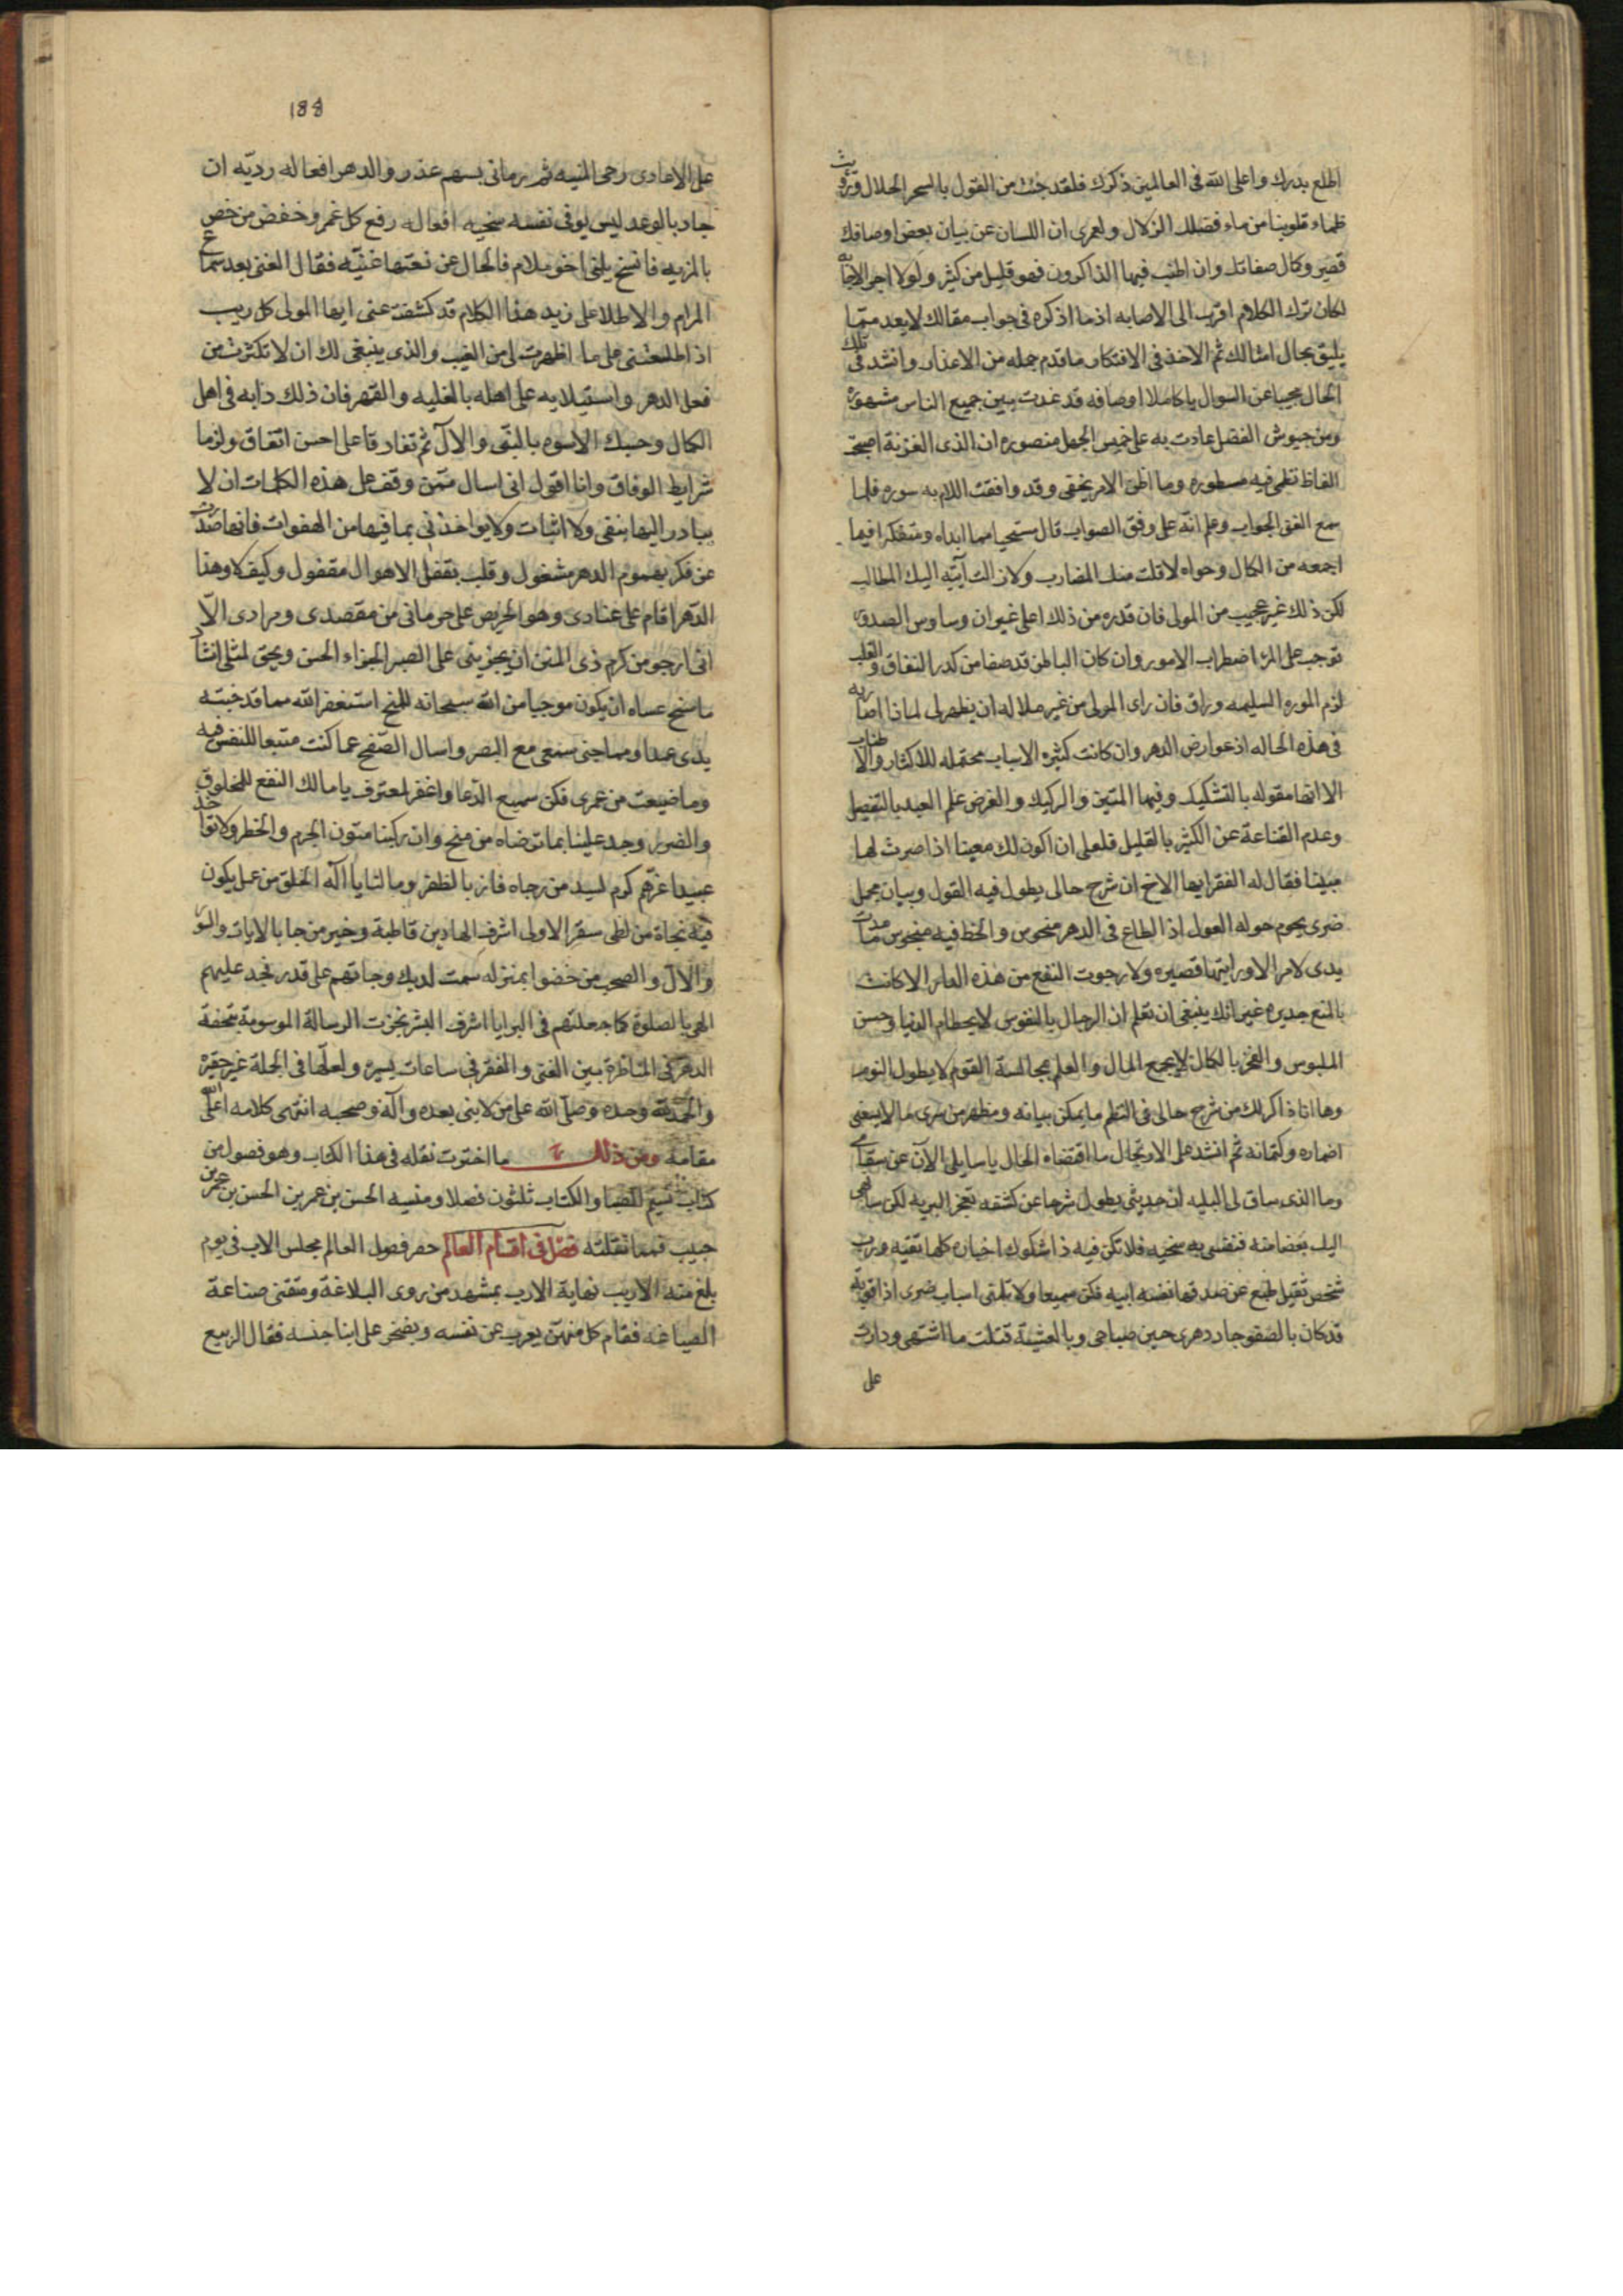 اطلع بدرك واعلى الله فى العالمين ذكرك فلقد جئت من القول بالسحر الحلال ورويت
ظماء قلوبنا من ماء فضلك الزلال ولعمرى ان اللسان عن بيان بعض اوصافك
قصير وكمال صفاتك وان اطنب فيها الذاكرون فهو قليل من كثير ولولا اجر الاجابه
لكان ترك الكلام اقرب الى الاصابه اذ ما اذكره فى جواب مقالك لا يعد مما
يليق بحال امثالك ثم الاخذ فى الافتكار ما قدم جمله من الاعذار وانشد فى تلك
الحال مجيبا عن السوال يا كاملا اوصافه قد غدت بين جميع الناس مشهوره
ومن جيوش الفضل عادت به على خميس الجهل منصوره ان الذى الغزته اصبحت
الفاظ نظمى فيه مسطوره وما اظن الامر يخفى وقد وافقت اللام به سوره فلما
سمع الغنى الجواب وعلم انه على وفق الصواب قال مستحيا مما ابداه ومتفكرا فيما
اجمعه من الكمال وحواه لاقلت منك المضارب ولا زالت آتية اليك المطالب
لكن ذلك غير عجيب من المولى فان قدره من ذلك اعلى غير ان وساوس الصدور
توجب على المرء اضطراب الامور وان كان الباطن قد صفا من كدر النفاق والقلب
لزم الموره السليمه وراق فان راى المولى من غير ملاله ان يظهر لى لماذا اصاربه
فى هذه الحاله اذ عوارض الدهر وان كانت كثيره الاسباب محتمله للاكثار والاطناب
الا انها مقوله بالتشكيك وفيها المتين والركيك والغرض علم العبد بالتفصيل
وعدم القناعة عن الكثير بالقليل فلعلى ان اكون لك معينا اذا صرت لها
مبينا فقال له الفقير ايها الاخ ان شرح حالى يطول فيه القول وبيان مجمل
ضرى يحوم حوله العول اذ الطالع فى الدهر منحوس والحظ فيه منحوس ما مدت
يدى لامر الا ورايتها قصيره ولا رجوت النفع من هذه العالم الا كانت
بالمنع جديره غير انك ينبغى ان تعلم ان الرجال بالنفوس لا بحطام الدنيا وحسن
الملبوس والفخر بالكمال لا بجمع المال والعلم بمجالسة القوم لا بطول النوم
وها انا ذاكر لك من شرح حالى فى النظم ما يمكن بيانه ومظهر من سرى ما لا ينبغى
اضماره وكتمانه ثم انشد على الارتجال ما اقتضاه الحال يا سايلى الآن عن سقامى
وما الذى ساق لى البليه ان حديثى يطول شرحا عن كشفه تعجز البريه لكن سانهى
اليك بعضا منه فنفسى به سخيه فلا تكن فيه ذا شكوك اخباره كلها تقيه ورب
شخص ثقيل طبع عن صدقها نفسه ابيه فكن سميعا ولا تلمنى اسباب ضرى اذا قويه
قد كان بالصفو جاد دهرى حين صباحى وبالعشية قتلت ما اشتهى ودارت
على
188
على الاعادى رحى المنيه ثم رمانى بسهم غدر والدهر افعاله رديه ان
جاد بالوعد ليس يوفى نفسه سخيه افعاله رفع كل غمر وخفض من خص
بالمزيه فانسخ يلقى اخو ملام فالحال عن نعتها غنيه فقال الغنى بعد سماع
المرام والاطلاع على زبد هذا الكلام قد كشفت عنى ايها المولى كل ريب
اذ اطلعتنى على ما اظهرت لى من الغيب والذى ينبغى لك ان لا تكترث من
فعل الدهر واستيلايه على اهله بالغلبه والقهر فان ذلك دابه فى اهل
الكمال وحسبك الاسوه بالنبى والآل ثم تفارقا على احسن اتفاق ولزما
شرايط الوفاق وانا اقول انى اسال ممن وقف على هذه الكلمات ان لا
يبادر اليها بنفى ولا اثبات ولا يواخذنى بما فيها من الهفوات فانها صدرت
عن فكر بهموم الدهر مشغول وقلب بقفل الاهوال مقفول وكيف لا وهذا
الدهر اقام على عنادى وهو الحريص على حرمانى من مقصدى ومرادى الا
انى ارجو من كرم ذى المنن ان يجزينى على الصبر الجزاء الحسن ويحق لمثلى انشاد
ما سنح عساه ان يكون موجبا من الله سبحانه للمنح استغفر الله مما قد جنته
يدى عمدا ومما جنى سمعى مع البصر واسال الصفح عما كنت متبعا للنفس فيه
وما ضيعت من عمرى فكن سميع الدعا واغفر لمعترف يا مالك النفع للمخلوق
والضرر وجد علينا بما ترضاه من منح وان ركبنا متون الجرم والخطر ولا تواخذ
عبيدا غرهم كرم لسيد من رجاه فاز بالظفر وما لنا يا اله الخلق من عمل يكون
فيه نجاة من لظى سقر الا ولى اشرف الهادين قاطبة وخير من جا بالايات والسور
والآل والصحب من خضوا بمنزله سمت لديك وجاتهم على قدر فجد عليهم
الهى بالصلوة كما جعلتهم فى البرايا اشرف البشر نجزت الرسالة الموسومة بتحفة
الدهر فى المناظرة بين الغنى والفقر فى ساعات يسيره ولعلها فى الجملة غير حقيره
والحمد لله وحده وصلى الله على من لا نبى بعده وآله وصحبه انتهى كلامه اعلى الله
مقامه ومن ذلك ما اخترت نقله فى هذا الكتاب وهو فصول من
كتاب نسيم الصبا والكتاب ثلثون فصلا ومنسيه الحسن بن عمر بن الحسن بن عمر بن
حبيب فمما نقلته فصل فى اقسام العالم حضر فصول العالم مجلس الادب فى يوم
بلغ منه الاريب نهاية الارب بمشهد من روى البلاغة ومتقنى صناعة
الصياغه فقام كل منهم يعرب عن نفسه ويفخر على ابنا جنسه فقال الربيع